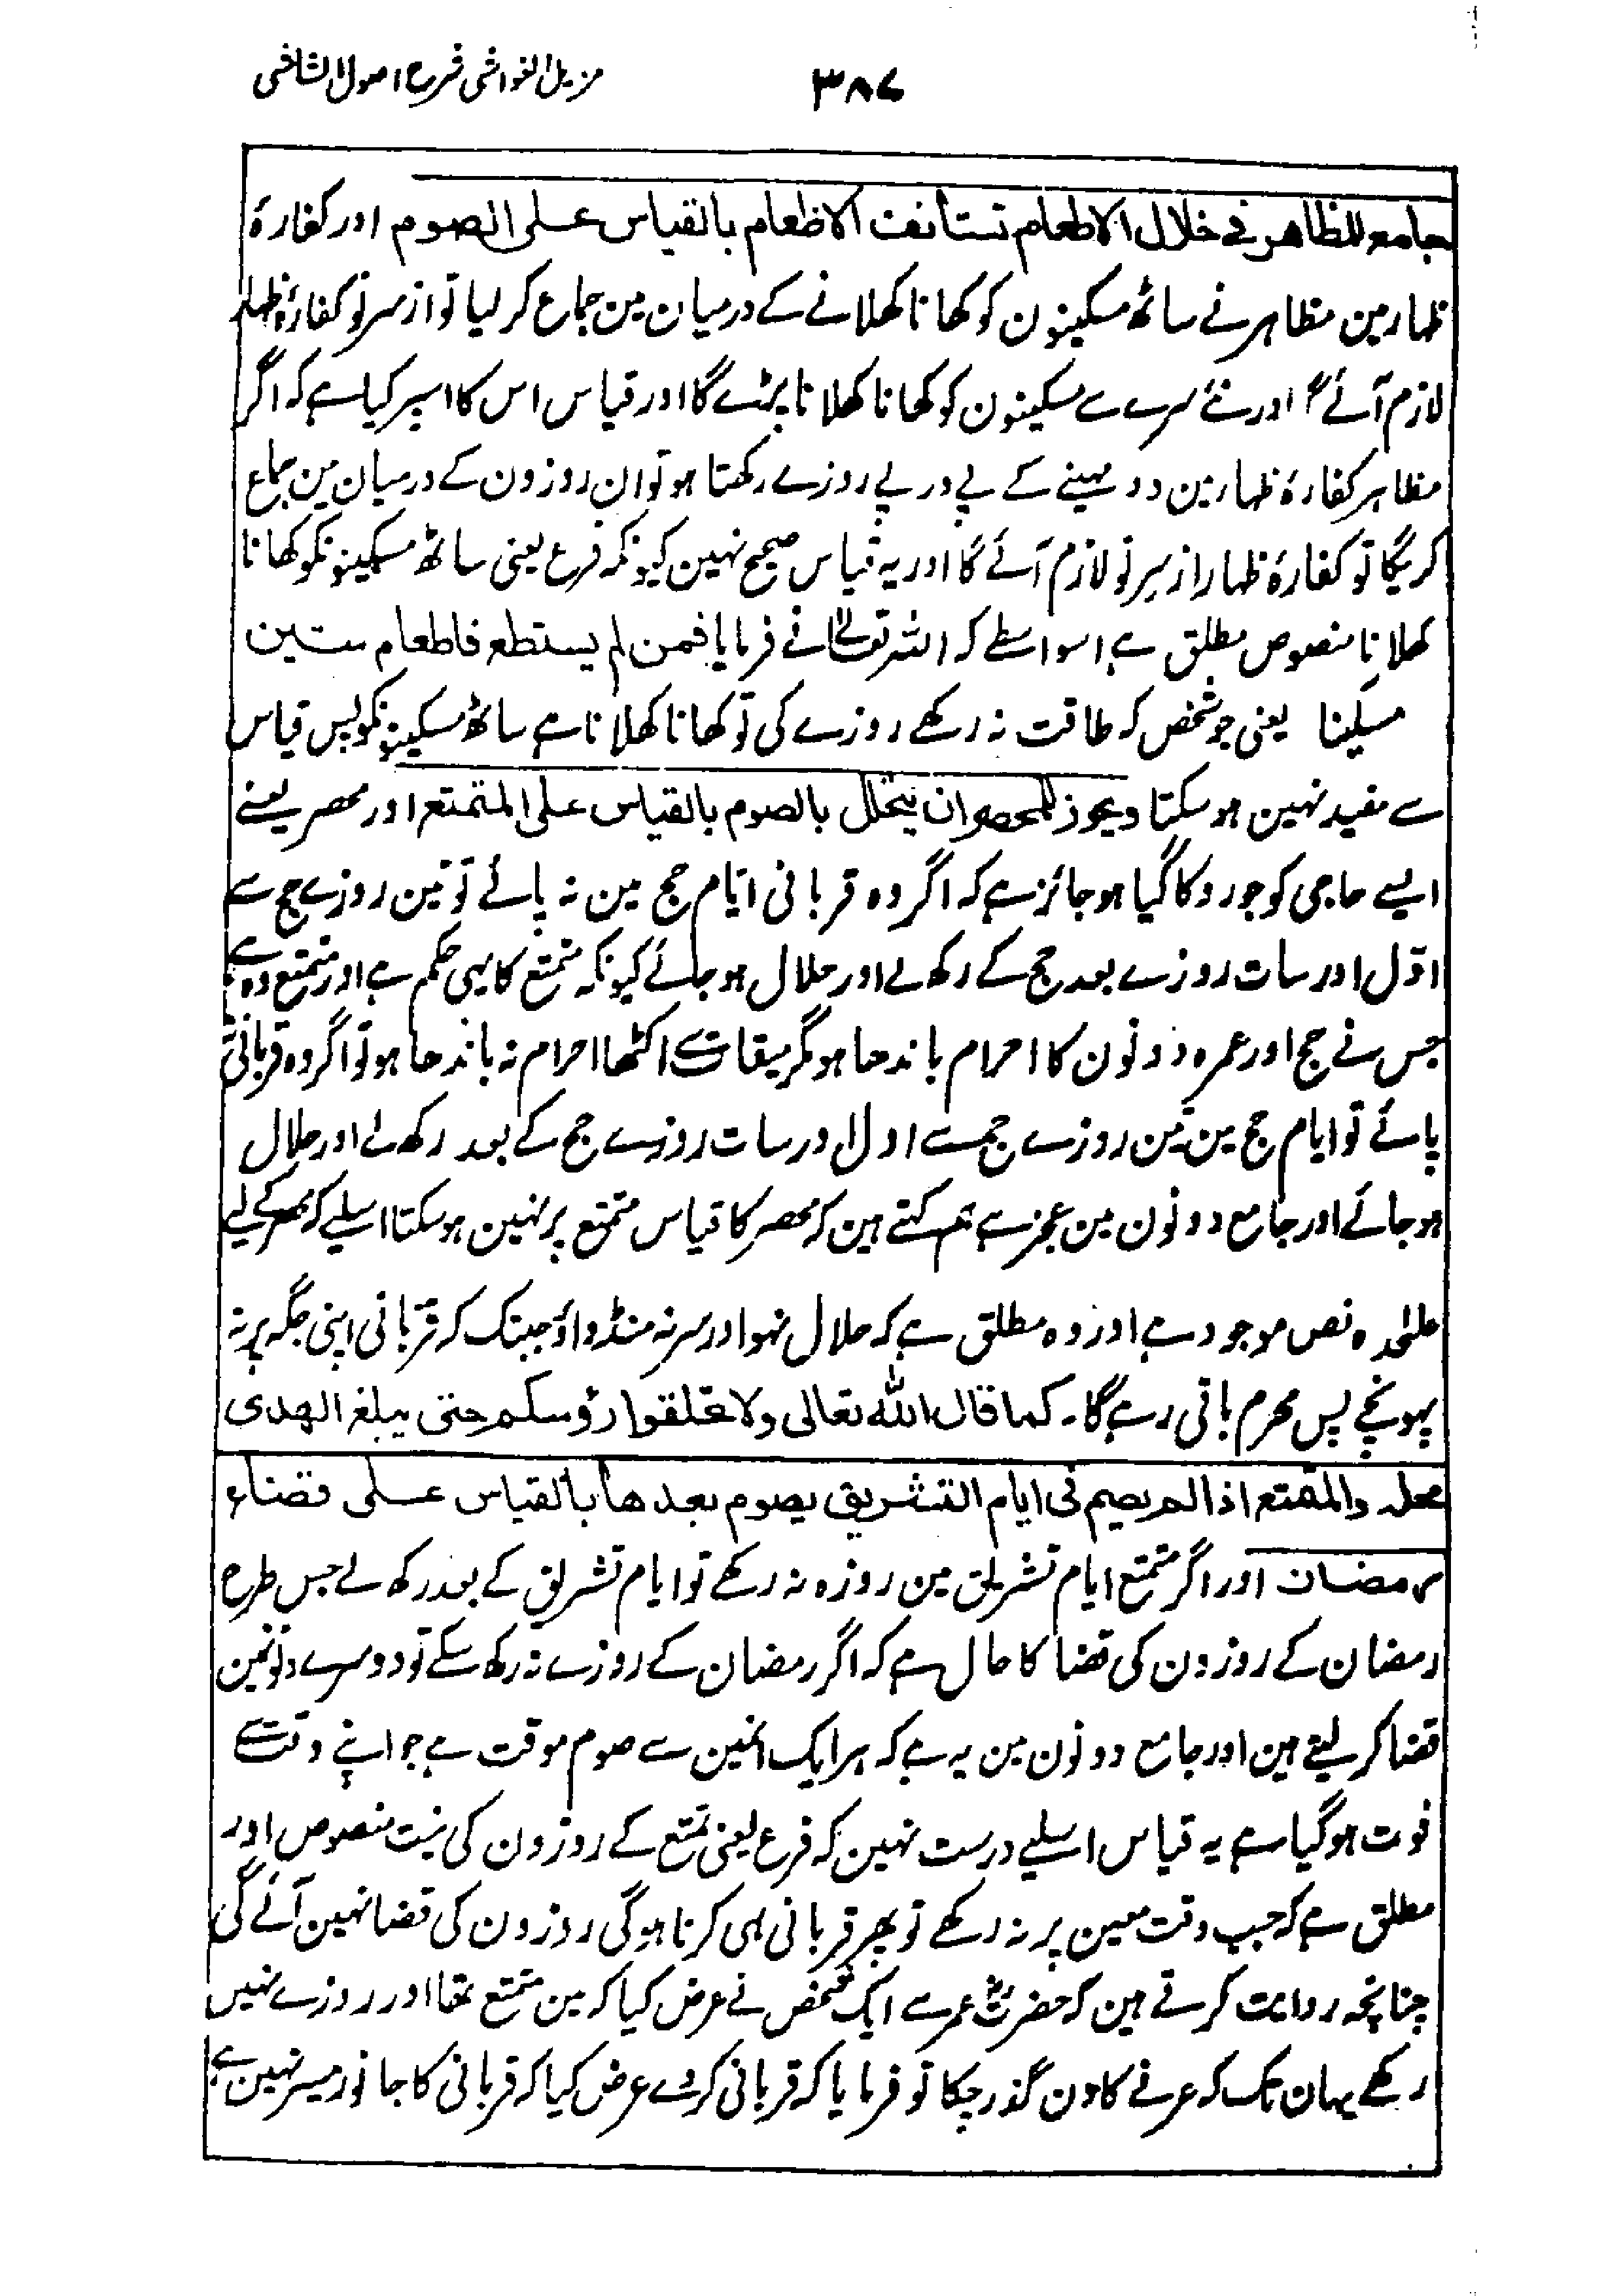 ۳۸۷ مزیل الغواشی شرح اصول الشاشی
جامع المظاهر فی خلال الاطعام تستأنف الاطعام بالقیاس علی الصوم اور کفارۂ
ظہار مین مظاہر نے ساٹھ مسکینون کو کھانا کھلانے کے درمیان مین جماع کر لیا تو از سر نو کفارۂ ظہار
لازم آئے گا اور نئے سرے سے مسکینون کو کھانا کھلانا پڑے گا اور قیاس اس کا اسپر کیا ہے کہ اگر
مظاہر کفارۂ ظہار مین دو مہینے کے پے در پے روزے رکھتا ہو تو ان روزون کے درمیان مین جماع
کریگا تو کفارۂ ظہار از سر نو لازم آئے گا اور یہ قیاس صحیح نہین کیونکہ فرع یعنی ساٹھ مسکینونکو کھانا
کھلانا منصوص مطلق ہے اسواسطے کہ اللہ تعالےٰ نے فرمایا فمن لم یستطع فاطعام ستین
مسکینا یعنی جو شخص کہ طاقت نہ رکھے روزے کی تو کھانا کھلانا ہے ساٹھ مسکینونکو پس قیاس
سے مفید نہین ہو سکتا ویجوز للمحصر ان یتحلل بالصوم بالقیاس علی المتمتع اور محصر یعنے
ایسے حاجی کو جو روکا گیا ہو جائز ہے کہ اگر وہ قربانی ایّام حج مین نہ پائے تو تین روزے حج سے
اوّل اور سات روزے بعد حج کے رکھ لے اور حلال ہو جائے کیونکہ متمتع کا یہی حکم ہے اور متمتع وہ ہے
جس نے حج اور عمرہ دونون کا احرام باندھا ہو مگر میقات سے اکٹھا احرام نہ باندھا ہو تو اگر وہ قربانی نہ
پائے تو ایام حج مین تین روزے حج سے اول اور سات روزے حج کے بعد رکھ لے اور حلال
ہو جائے اور جامع دونون مین عجز ہے ہم کہتے ہین کہ محصر کا قیاس متمتع پر نہین ہو سکتا اسلیے کہ محصر کے لیے
علٰحدہ نص موجود ہے اور وہ مطلق ہے کہ حلال نہو اور سر نہ منڈواؤ جبتک کہ قربانی اپنی جگہ پر نہ
پہونچے پس محرم باقی رہے گا۔ کما قال اللہ تعالی ولا تحلقوا رؤسکم حتی یبلغ الهدی
محله والمتمتع اذا لم یصم فی ایام التشریق یصوم بعدها بالقیاس علی قضاء
رمضان اور اگر متمتع ایام تشریق مین روزہ نہ رکھے تو ایام تشریق کے بعد رکھ لے جس طرح
رمضان کے روزون کی قضا کا حال ہے کہ اگر رمضان کے روزے نہ رکھ سکے تو دوسرے دنونمین
قضا کر لیتے ہین اور جامع دونون مین یہ ہے کہ ہر ایک انمین سے صوم موقت ہے جو اپنے وقت سے
فوت ہو گیا ہے یہ قیاس اسلیے درست نہین کہ فرع یعنی تمتع کے روزون کی نیت منصوص اور
مطلق ہے کہ جب وقت معین پر نہ رکھے تو پھر قربانی ہی کرنا ہوگی روزون کی قضا نہین آئے گی
چنانچہ روایت کرتے ہین کہ حضرت عمر سے ایک شخص نے عرض کیا کہ مین متمتع تھا اور روزے نہیں
رکھے یہان تک کہ عرفے کا دن گذر چکا تو فرمایا کہ قربانی کر دے عرض کیا کہ قربانی کا جانور میسر نہین ہے